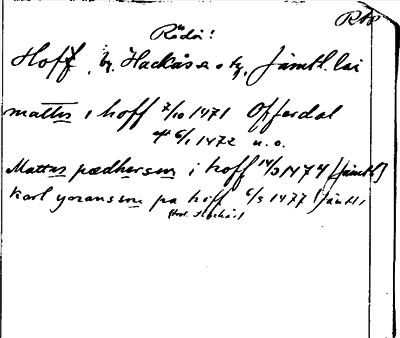 Rödö!
Hoff, by, Hackås sn o tg, Jämtl. län
mattis i hoff 7/10 1471 Offerdal
6/1 1472 n. o.
Mattus pædherson i hoff 14/3 1474 (Jämtl)
Karl joransson pa hoff 6/3 1477 (Jämtl)